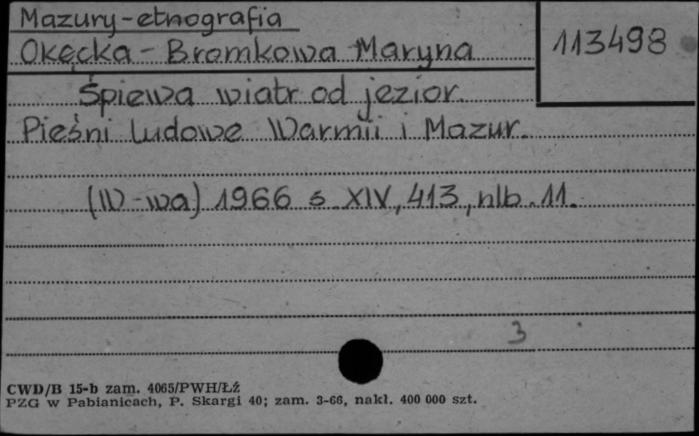 Mazury-etnografia
Okęcka-Bromkowa Maryna
113498
Śpiewa wiatr od jezior.
Pieśni ludowe Warmii i Mazur.
(W-wa) 1966 s XIV, 413, nlb. 11.
3
CWD/B 15-b zam. 4065/PWH/ŁŹ
PZG w Pabianicach, P. Skargi 40; zam. 3-66, nakł. 400 000 szt.